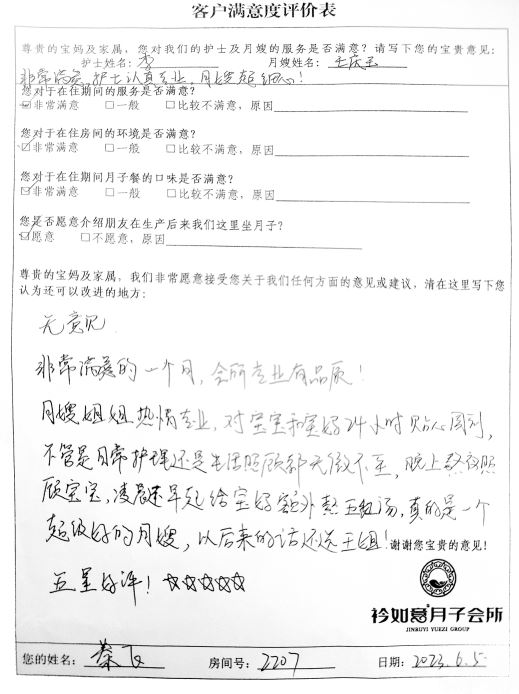 客户满意度评价表
尊贵的宝妈及家属，您对我们的护士及月嫂的服务是否满意？请写下您的宝贵意见：
护士姓名：李 月嫂姓名：王庆玉
非常满意，护士认真专业，月嫂超细心！
您对于在住期间的服务是否满意？
☑非常满意 □一般 □比较不满意，原因
您对于在住房间的环境是否满意？
☑非常满意 □一般 □比较不满意，原因
您对于在住期间月子餐的口味是否满意？
☑非常满意 □一般 □比较不满意，原因
您是否愿意介绍朋友在生产后来我们这里坐月子？
☑愿意 □不愿意，原因
尊贵的宝妈及家属，我们非常愿意接受您关于我们任何方面的意见或建议，请在这里写下您
认为还可以改进的地方：
无意见
非常满意的一个月，会所专业有品质！
月嫂姐姐热情专业，对宝宝和宝妈24小时贴心周到，
不管是日常护理还是生活照顾都无微不至，晚上熬夜照
顾宝宝，凌晨还早起给宝妈额外熬五红汤，真的是一个
超级好的月嫂，以后来的话还选王姐！谢谢您宝贵的意见！
五星好评！☆☆☆☆☆
衿如意月子会所
JINRUYI YUEZI GROUP
您的姓名：秦飞 房间号：2207 日期：2023.6.5